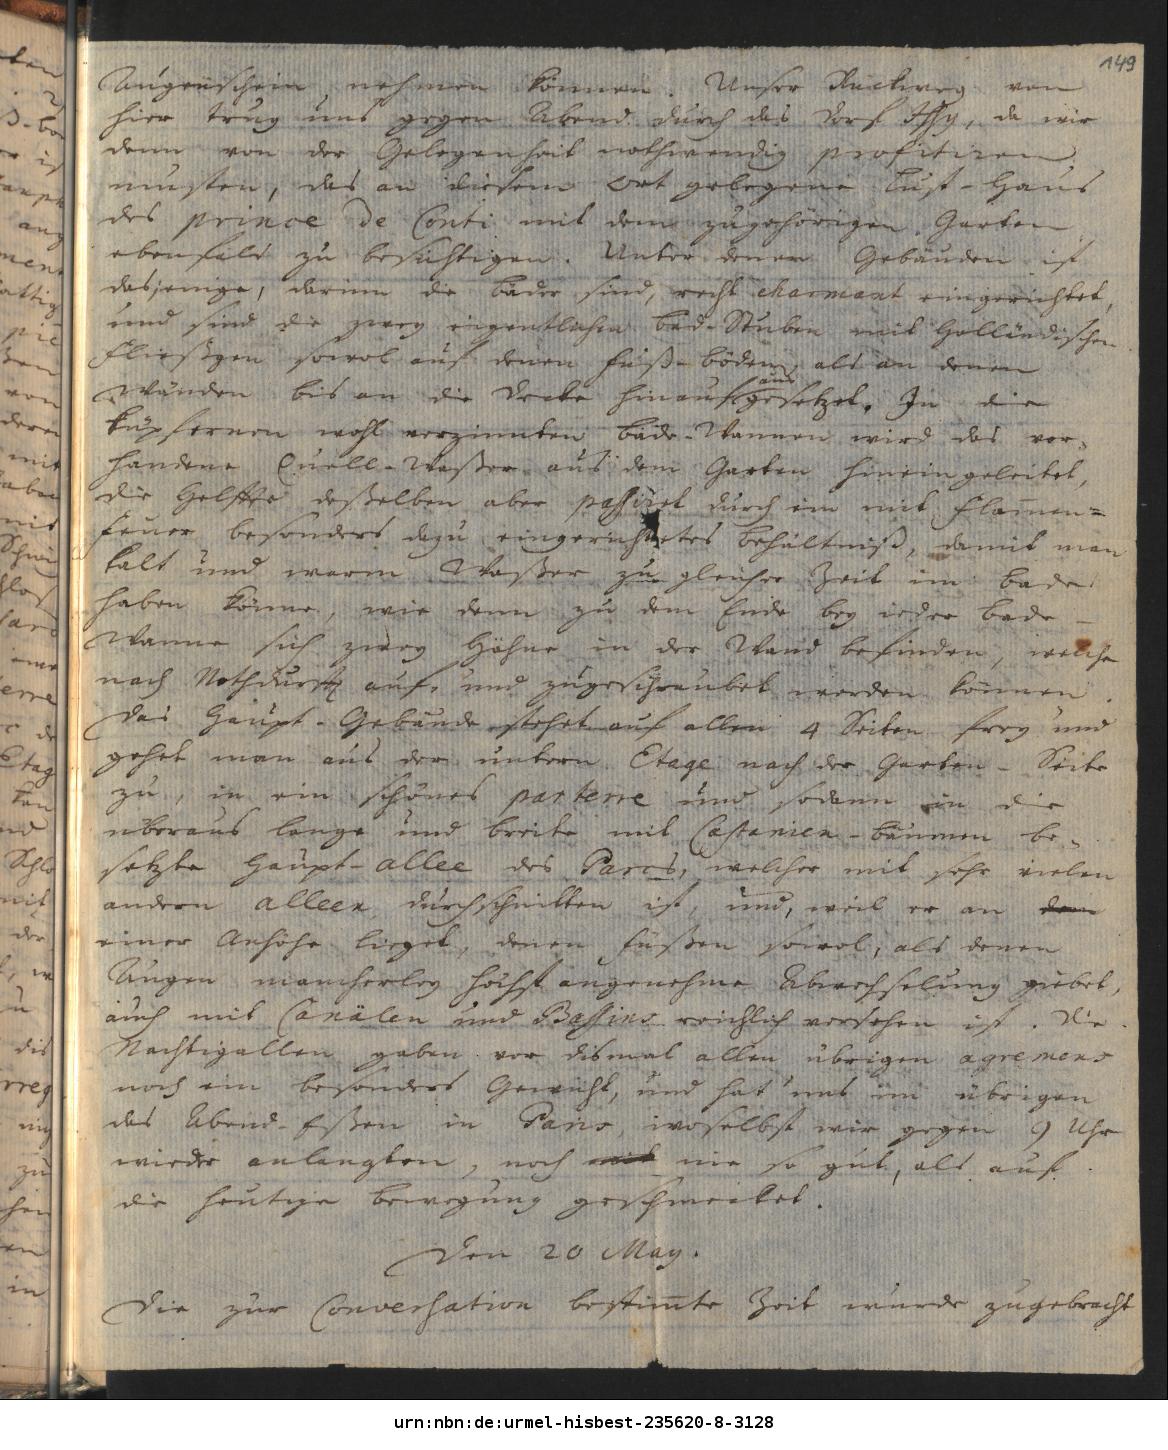 149
Augenschein nehmen können. Unser Rückweg von
hier trug uns gegen Abend durch das Dorf Issy, da wir
denn von der Gelegenheit nothwendig profitiren
musten, das an diesem Ort gelegene Lust-Haus
des prince de Conti mit dem zugehörigen Garten
ebenfals zu besichtigen. Unter denen Gebäuden ist
dasjenige, darinn die Bäder sind, recht charmant eingerichtet,
und sind die zwey eigentlichen Bad-Stuben mit Holländischen
Fließgen sowol auf denen Fuß-böden, als an denen
Wänden bis an die Decke hinauf ausgesetzet. In die
küpfernen wohl verzinnten Bade-Wannen wird das vor-
handene Quell-Waßer aus dem Garten hineingeleitet,
die Helffte deßelben aber passiret durch ein mit Flam̄en-
feuer besonders dazu eingerichtetes Behältniß, damit man
kalt und warm Waßer zu gleicher Zeit im Bade
haben könne, wie denn zu dem Ende bey ieder Bade-
Wanne sich zwey Hähne in der Wand befinden, welche
nach Nothdurfft auf- und zugeschraubet werden können.
Das Haupt-Gebäude stehet auf allen 4 Seiten frey und
gehet man aus der untern Etage nach der Garten-Seite
zu, in ein schönes parterre und sodann in die
überaus lange und breite mit Castanien-bäumen be-
setzte Haupt-allee des Parcs, welcher mit sehr vielen
andern alleen durchschnitten ist, und, weil er an dem
einer Anhöhe lieget, denen Füßen sowol, als denen
Augen mancherley höchst angenehme Abwechselung giebet,
auch mit Canälen und Bassins reichlich versehen ist. Die
Nachtigallen gaben vor dismal allen übrigen agremens
noch ein besonders Gewicht, und hat uns im übrigen
das Abend-Eßen in Paris, woselbst wir gegen 9 Uhr
wieder anlangten, noch nie so gut, als auf
die heutige Bewegung geschmecket.
Den 20 May.
Die zur Conversation bestim̄te Zeit wurde zugebracht
urn:nbn:de:urmel-hisbest-235620-8-3128